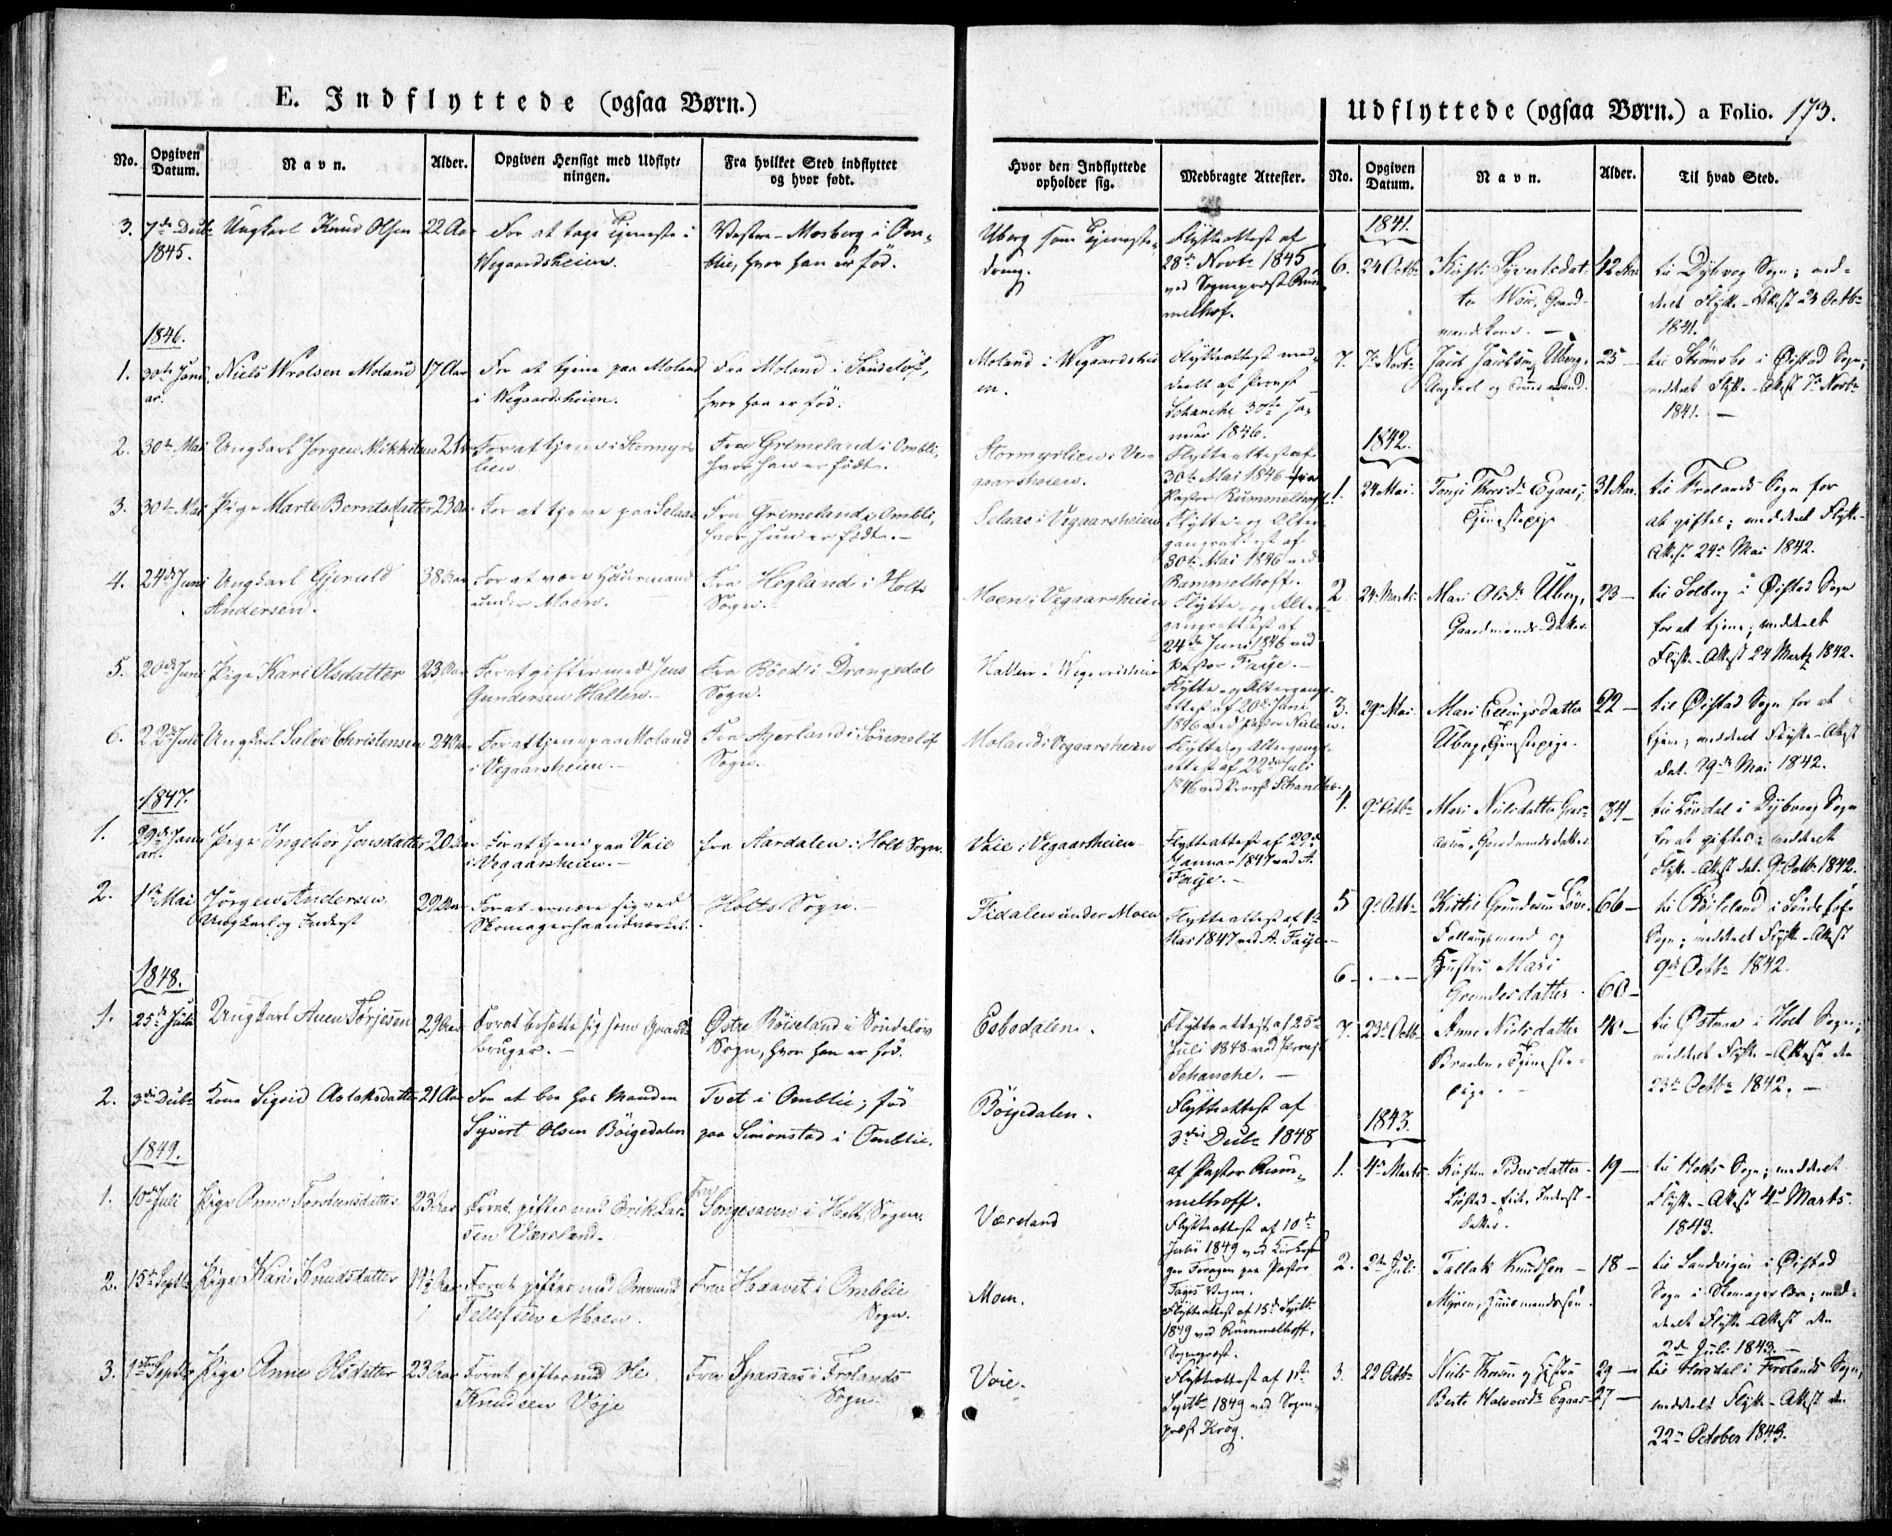 E. Indflyttede (ogsaa Børn.)
No. Opgiven Datum. Navn. Alder. Opgiven Hensigt med Udflytningen. Fra hvilket Sted indflyttet og hvor født.
3. 7de Decbr 1845. Ungkarl Knud Olsen 22 Aar For at tage Tjeneste i Wegaardsheien. Vestre-Mosberg i Omblie, hvor han er fød.
1846.
1. 30te Januar. Niels Wrolsen Moland 17 Aar For at tjene paa Moland i Wegaardsheien. Fra Moland i Søndeløf, hvor han er fød.
2. 30te Mai Ungkarl Jørgen Mikkelsen 21 For at tjene i Stormyrlien Fra Grimeland i Ombli, hvor han er født.
3. 30te Mai Pige Marte Berntsdatter 23 Aar For at tjene paa Selaas Fra Grimeland i Ombli, hvor hun er født.
4. 24de Juni Ungkarl Gjeruld Andersen. 38 Aar For at være Huusmand under Moen. Fra Hegland i Holts Sogn.
5. 20de Juni Pige Kari Olsdatter 23 Aar For at gifte med Jens Gundersen Hallen. Fra Böe i Drangedal Sogn.
6. 22de Juli Ungkarl Salve Christensen 24 Aar For at tjene paa Moland i Vegaarsheien. Fra Ajerland i Sönneløf Sogn.
1847.
1. 29de Januar. Pige Ingebor Jensdatter 20 Aar For at tjene paa Vaie i Vegaarsheien. fra Aardalen i Holt Sogn.
2. 1te Mai Jørgen Andersen Ungkarl og Inderst 29 Aar For at ernære sig ved Skomagerhaandværket. Holts Sogn.
1848.
1. 25de Juli Ungkarl Aven Törjesen 29 Aar For at bosætte sig som Gaardbruger. Østre Röiseland i Søndeløv Sogn, hvor han er fød.
2. 3die Decbr Kone Sigrid Aslaksdatter 21 Aar For at boe hos Manden Syvert Olsen Böigedalen Tvet i Omblie; fød paa Simonstad i Omblie.
1849.
1. 10de Juli Pige Anne Torstensdatter 23 Aar For at gifte med Erik Larsen Værsland. Fra Songesaven i Holt Sogn.
2. 15de Septbr Pige Kari Knudsdatter Aar For at gifte med Ommund Tellefsen Moen. Fra Haxavet i Omblie Sogn.
3. 1ste Septbr Pige Anne Olsdatter 23 Aar For at gifte med Ole Knudsen Voje Fra Spanaas i Frolands Sogn.
Hvor den Indflyttede opholder sig. Medbragte Attester.
Uberg som Tjenestedreng. Flytteattest af 28de Novbr 1845 ved Sognepræst Rummelhof.
Moland i Wegaardsheien. Flytteattest meddeelt af Provst Schanche 30te Januar 1846.
Stormyrlien i Vegaarsheien. Flytteattest af 30te Mai 1846 fra Pastor Rummelhoff.
Selaas i Vegaarsheien Flytte- og Altergangsattest af 30te Mai 1846 ved Rummelhoff.
Moen i Vegaarsheien Flytte- og Altergangsattest af 24de Juni 1846 ved Pastor Faye.
Hallen i Wegaarsheien Flytte- og Altergangsattest af 20de Juni 1846 ved Pastor
Moland i Vegaarsheien Flytte- og Altergangsattest af 22de Juli 1846 ved Provst Schanche.
Vaie i Vegaarsheien Flytteattest af 29de Januar 1847 ved A. Faye.
Fidalen under Moen Flytteattest af 1te Mai 1847 ved A. Faye.
Esbodalen. Flytteattest af 25de Juli 1848 ved Provst Schanche.
Böigedalen. Flytteattest af 3die Decbr 1848 af Pastor Rummelhoff.
Værsland Flytteattest af 10de Juli 1849 ved paa Pastor Fayes Vegne.
Moen. Flytteattest af 15de Septbr 1849 ved Rummelhoff, Sognepræst.
Voie. Flytteattest af 1ste Septbr 1849 ved Sognepræst Krog.
Udflyttede (ogsaa Børn.) a Folio. 173.
No. Opgiven Datum. Navn. Alder. Til hvad Sted.
1841.
6. 24 Octbr Kirsti Syvertsdatter Gaardmandskone. 42 Aar til Dybvog Sogn; meddeelt Flytte-Attest 24 Octbr 1841.
7. 7de Novbr Jacob Jacobsen Uberg, Ungkarl og 25 til Strømsbo i Øistad Sogn; meddeelt Flytte-Attest 7de Novbr 1841.
1842.
1. 24 Mai. Tonje Thorsdr Egaas, Tjenestepige 31 Aar. til Frolands Sogn for at giftes; meddeelt Flytte-Attest 24de Mai 1842.
2. 24 Marts. Mari Olsdr Uberg, Gaardmands-Datter 23 til Solberg i Øistad Sogn for at tjene; meddeelt Flytte-Attest 24 Marts 1842.
3. 29de Mai Mari Ellingsdatter Uberg, Tjenestepige. 22 til Øistad Sogn for at tjene; meddeelt Flytte-Attest dat. 29de Mai 1842.
4. 9de Octbr Mari Nielsdatter Gaardmandsdatter 34 til i Dybvog Sogn for at giftes; meddeelt Flytte-Attest dat. 9de Octbr 1842.
5 9de Octbr Kittil Gundersen Føllaugsmand og 66 til Röiseland i Søndeløfs Sogn; meddeelt Flytte-Attest 9de Octbr 1842.
6 Hustru Mari Gundersdatter. 60
7. 23de Octbr Anne Nielsdatter Braaden, Tjenestepige. 40 til Østeraa i Holt Sogn; meddeelt Flytte-Attest den 23de Octbr 1842.
1843.
1. 4de Marts Kirsten Pedersdatter Inderst-datter. 19 til Holts Sogn; meddeelt Flytte-Attest 4de Marts 1843.
2. 2de Juli Tallak Knudsen Myren, Huusmandssøn. 18 til Sandvigen i Øistad Sogn i Skomagerlære; meddeelt Flytte-Attest den 2de Juli 1843.
3. 22 Octbr Niels Thorsen og Hustru Berte Halvorsdr Egaas 29 27 til i Frolands Sogn, meddeelt Flytte-Attest den 22de October 1843.